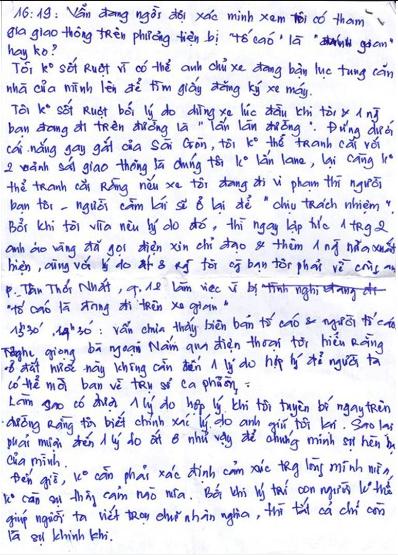 16:19: Vẫn đang ngồi đợi xác minh xem tôi có tham
gia giao thông trên phương tiện bị "tố cáo" là "gian"
hay ko?
Tôi ko sốt ruột vì có thể anh chủ xe đang bận lục tung căn
nhà của mình lên để tìm giấy đăng ký xe máy.
Tôi ko sốt ruột bởi lý do dừng xe lúc đầu khi tôi & 1 ng
bạn đang đi trên đường là "lấn làn đường". Đứng dưới
cái nắng gay gắt của Sài Gòn, tôi ko thể tranh cãi với
2 cảnh sát giao thông là chúng tôi ko lấn lane, lại càng ko
thể tranh cãi rằng nếu xe tôi đang đi vi phạm thì người
bạn tôi - người cầm lái sẽ ở lại để "chịu trách nhiệm".
Bởi khi tôi vừa nêu lý do đó, thì ngay lập tức 1 trg 2
anh áo vàng đã gọi điện xin chỉ đạo & thêm 1 ng nữa xuất
hiện, cùng với lý do ất ơ rằng tôi cg bạn tôi phải về công an
P. Tân Thới Nhất, q.12 làm việc vì bị tình nghi đang đi
"tố cáo là đang đi trên xe gian"
1530, 1430: vẫn chưa thấy biên bản tố cáo & người tố cáo
Nghe giọng bà ngoại Nấm qua điện thoại tôi hiểu rằng
ở đất nước này không cần đến 1 lý do hợp lý để người ta
có thể mời bạn về trụ sở ca phường.
Làm sao có được 1 lý do hợp lý khi tôi tuyên bố ngay trên
đường rằng tôi biết chính xác lý do anh giữ tôi lại. Sao lại
phải mượn đến 1 lý do ất ơ như vậy để chứng minh sự hèn
của mình.
Đến giờ, ko cần phải xác định cảm xúc trg lòng mình nữa,
ko cần sự thông cảm nào nữa. Bởi khi lý trí con người ko thể
giúp người ta viết trọn chữ nhân nghĩa, thì tất cả chỉ còn
là sự khinh khi.